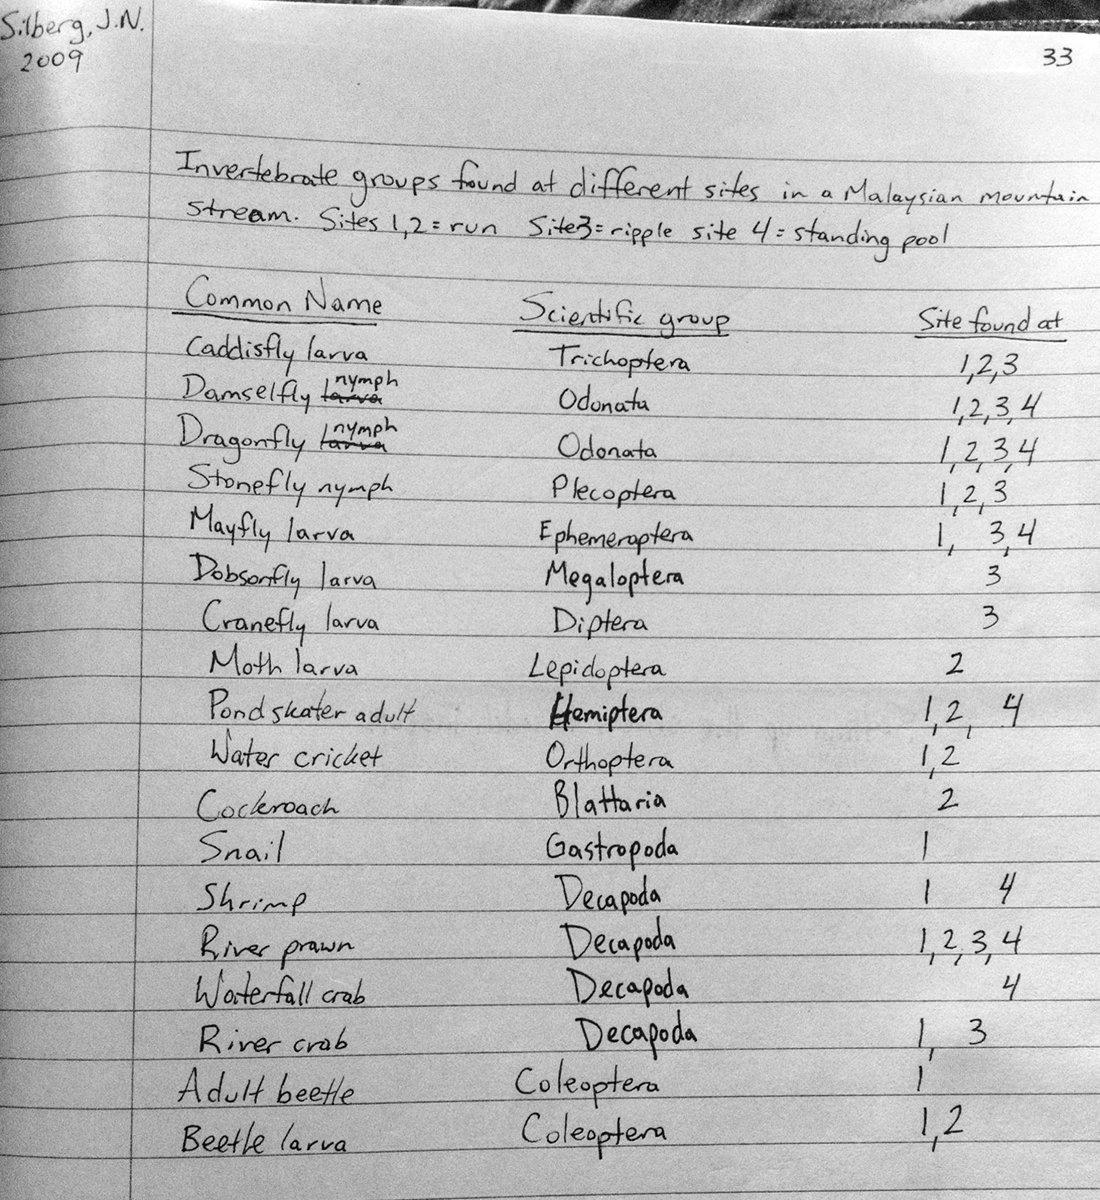 Silberg, J.N. 33
2009
Invertebrate groups found at different sites in a Malaysian mountain
stream. Sites 1,2=run Site3=ripple site 4=standing pool
Common Name Scientific group Site found at
Caddisfly larva Trichoptera 1,2,3
Damselfly larva nymph Odonata 1,2,3,4
Dragonfly larva nymph Odonata 1,2,3,4
Stonefly nymph Plecoptera 1,2,3
Mayfly larva Ephemeroptera 1, 3,4
Dobsonfly larva Megaloptera 3
Cranefly larva Diptera 3
Moth larva Lepidoptera 2
Pond skater adult Hemiptera 1,2, 4
Water cricket Orthoptera 1,2
Cockroach Blattaria 2
Snail Gastropoda 1
Shrimp Decapoda 1 4
River prawn Decapoda 1,2,3,4
Waterfall crab Decapoda 4
River crab Decapoda 1, 3
Adult beetle Coleoptera 1
Beetle larva Coleoptera 1,2